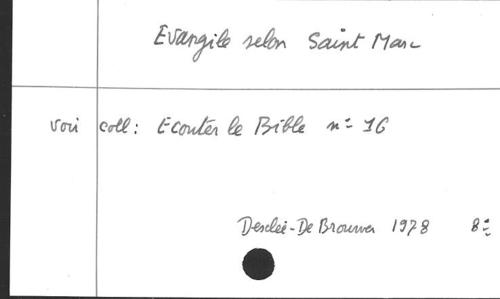 Evangile selon Saint Marc
voir coll: Ecouter le Bible n= 16
Desclée-De Brouwer 1978 8°